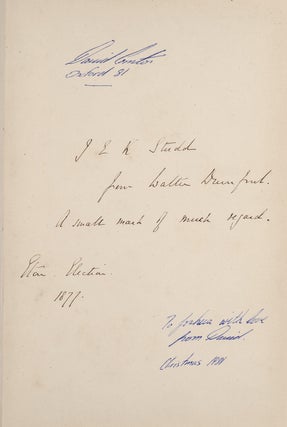 David
Oxford 81
J E K Studd
from Walter Durnford.
A small mark of much regard.
Eton. Election.
1877.
To Joshua with love
from David.
Christmas 1981